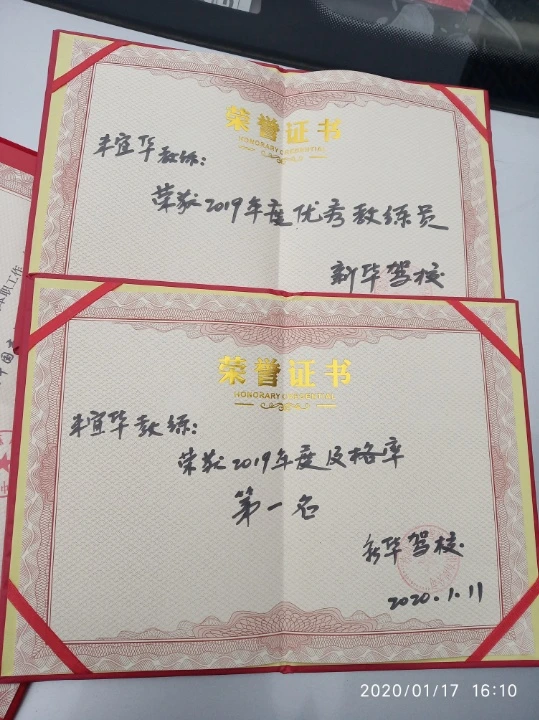 荣誉证书
HONORARY CREDENTIAL
丰宜华教练：
荣获2019年度优秀教练员
新华驾校
本职工作
中国
荣誉证书
HONORARY CREDENTIAL
丰宜华教练：
荣获2019年度及格率
第一名
新华驾校
2020.1.11
2020/01/17 16:10